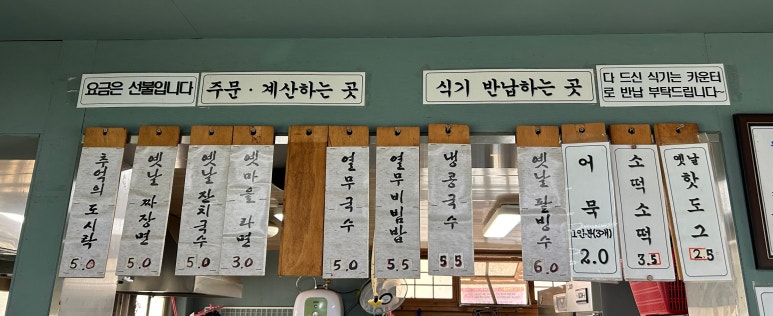 요금은 선불입니다
주문 · 계산하는 곳
식기 반납하는 곳
다 드신 식기는 카운터
로 반납 부탁드립니다~
추억의 도시락
5.0
옛날 짜장면
5.0
옛날 잔치국수
5.0
옛마을 라면
3.0
열무국수
5.0
열무비빔밥
5.5
냉콩국수
5.5
옛날 팥빙수
6.0
어묵
1인분(3개)
2.0
소떡소떡
3.5
옛날
핫도그
2.5